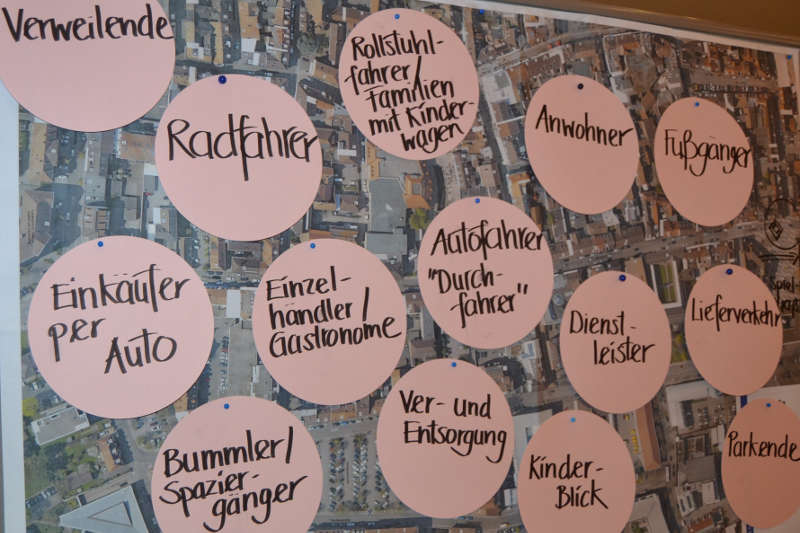 Verweilende
Radfahrer
Rollstuhl-
fahrer/
Familien
mit Kinder-
wagen
Anwohner
Fußgänger
Einkäufer
per
Auto
Einzel-
händler/
Gastronome
Autofahrer
"Durch-
fahrer"
Dienst-
leister
Lieferverkehr
Bummler/
Spazier-
gänger
Ver- und
Entsorgung
Kinder-
Blick
Parkende